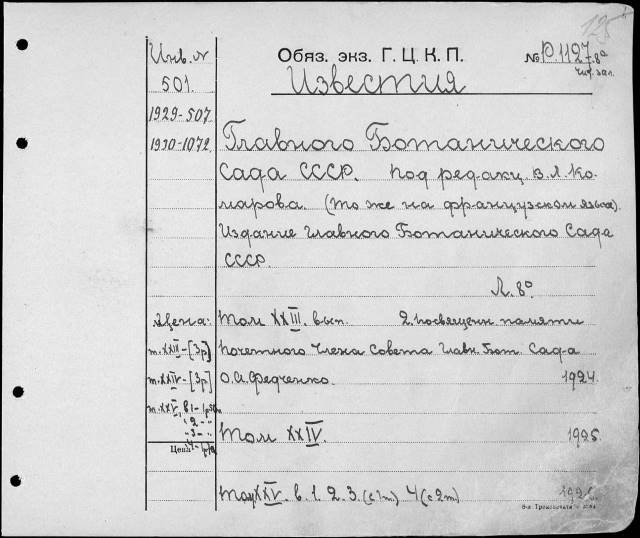 125
Инв. №
501.
1929-507.
1930-1072.
Обяз. экз. Г. Ц. К. П.
№ Р.1127-8°
Чит. зал.
Известия
Главного Ботанического
Сада СССР. Под редакц. В. Л. Ко-
марова. (То же на французском языке).
Издание Главного Ботанического Сада
СССР.
Л. 8°
Цена:
Том XXIII. вып. 2. посвящен. памяти
т. XXIII-[3р]
почетного члена Совета Главн. Бот. Сада
т. XXIV-[3р]
О. А. Федченко. 1924.
т. XXV, в 1-
" 2 - "
" 3 - "
Цена
Том XXIV. 1925.
Том XXV. в. 1. 2. 3. (с 1т) 4 (с 2т)